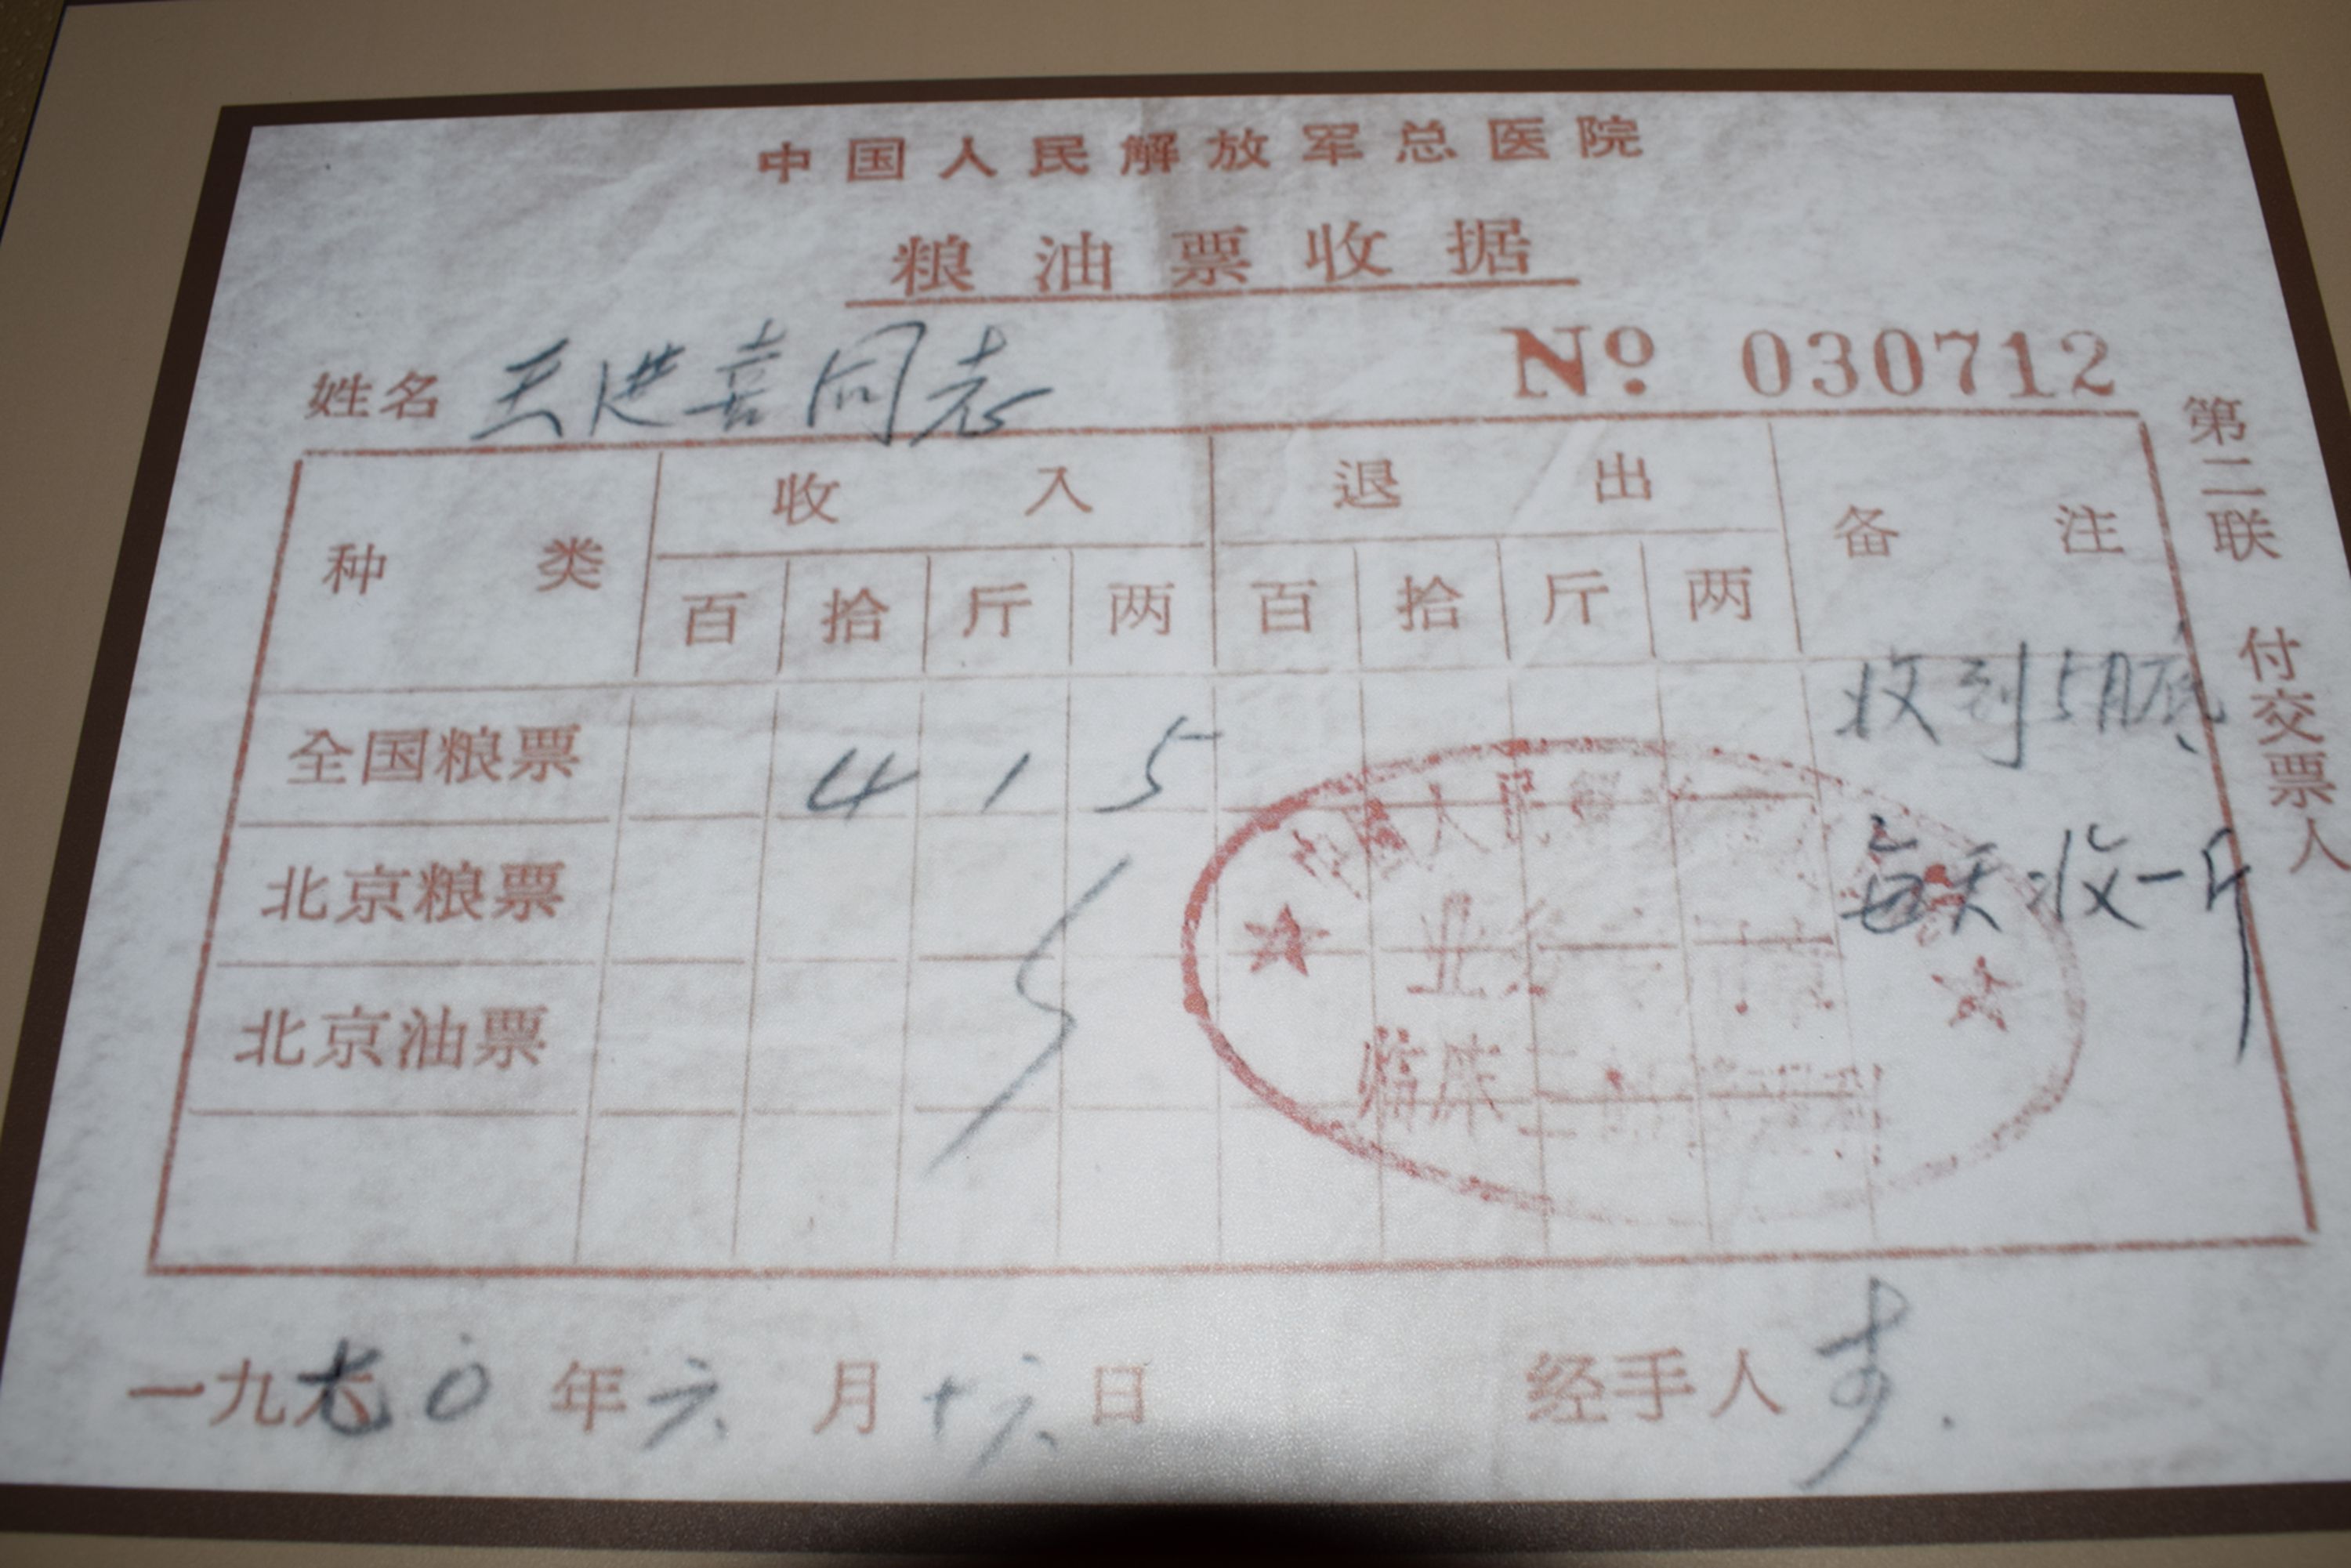 中国人民解放军总医院
粮油票收据
姓名 王进喜同志 Nº 030712
种类 收入 退出 备注
百 拾 斤 两 百 拾 斤 两
全国粮票 4 1 5 收到5月底
北京粮票 每天收一斤
北京油票
中国人民解
业务
临床三
一九七0年六月十六日 经手人
第二联 付交票人